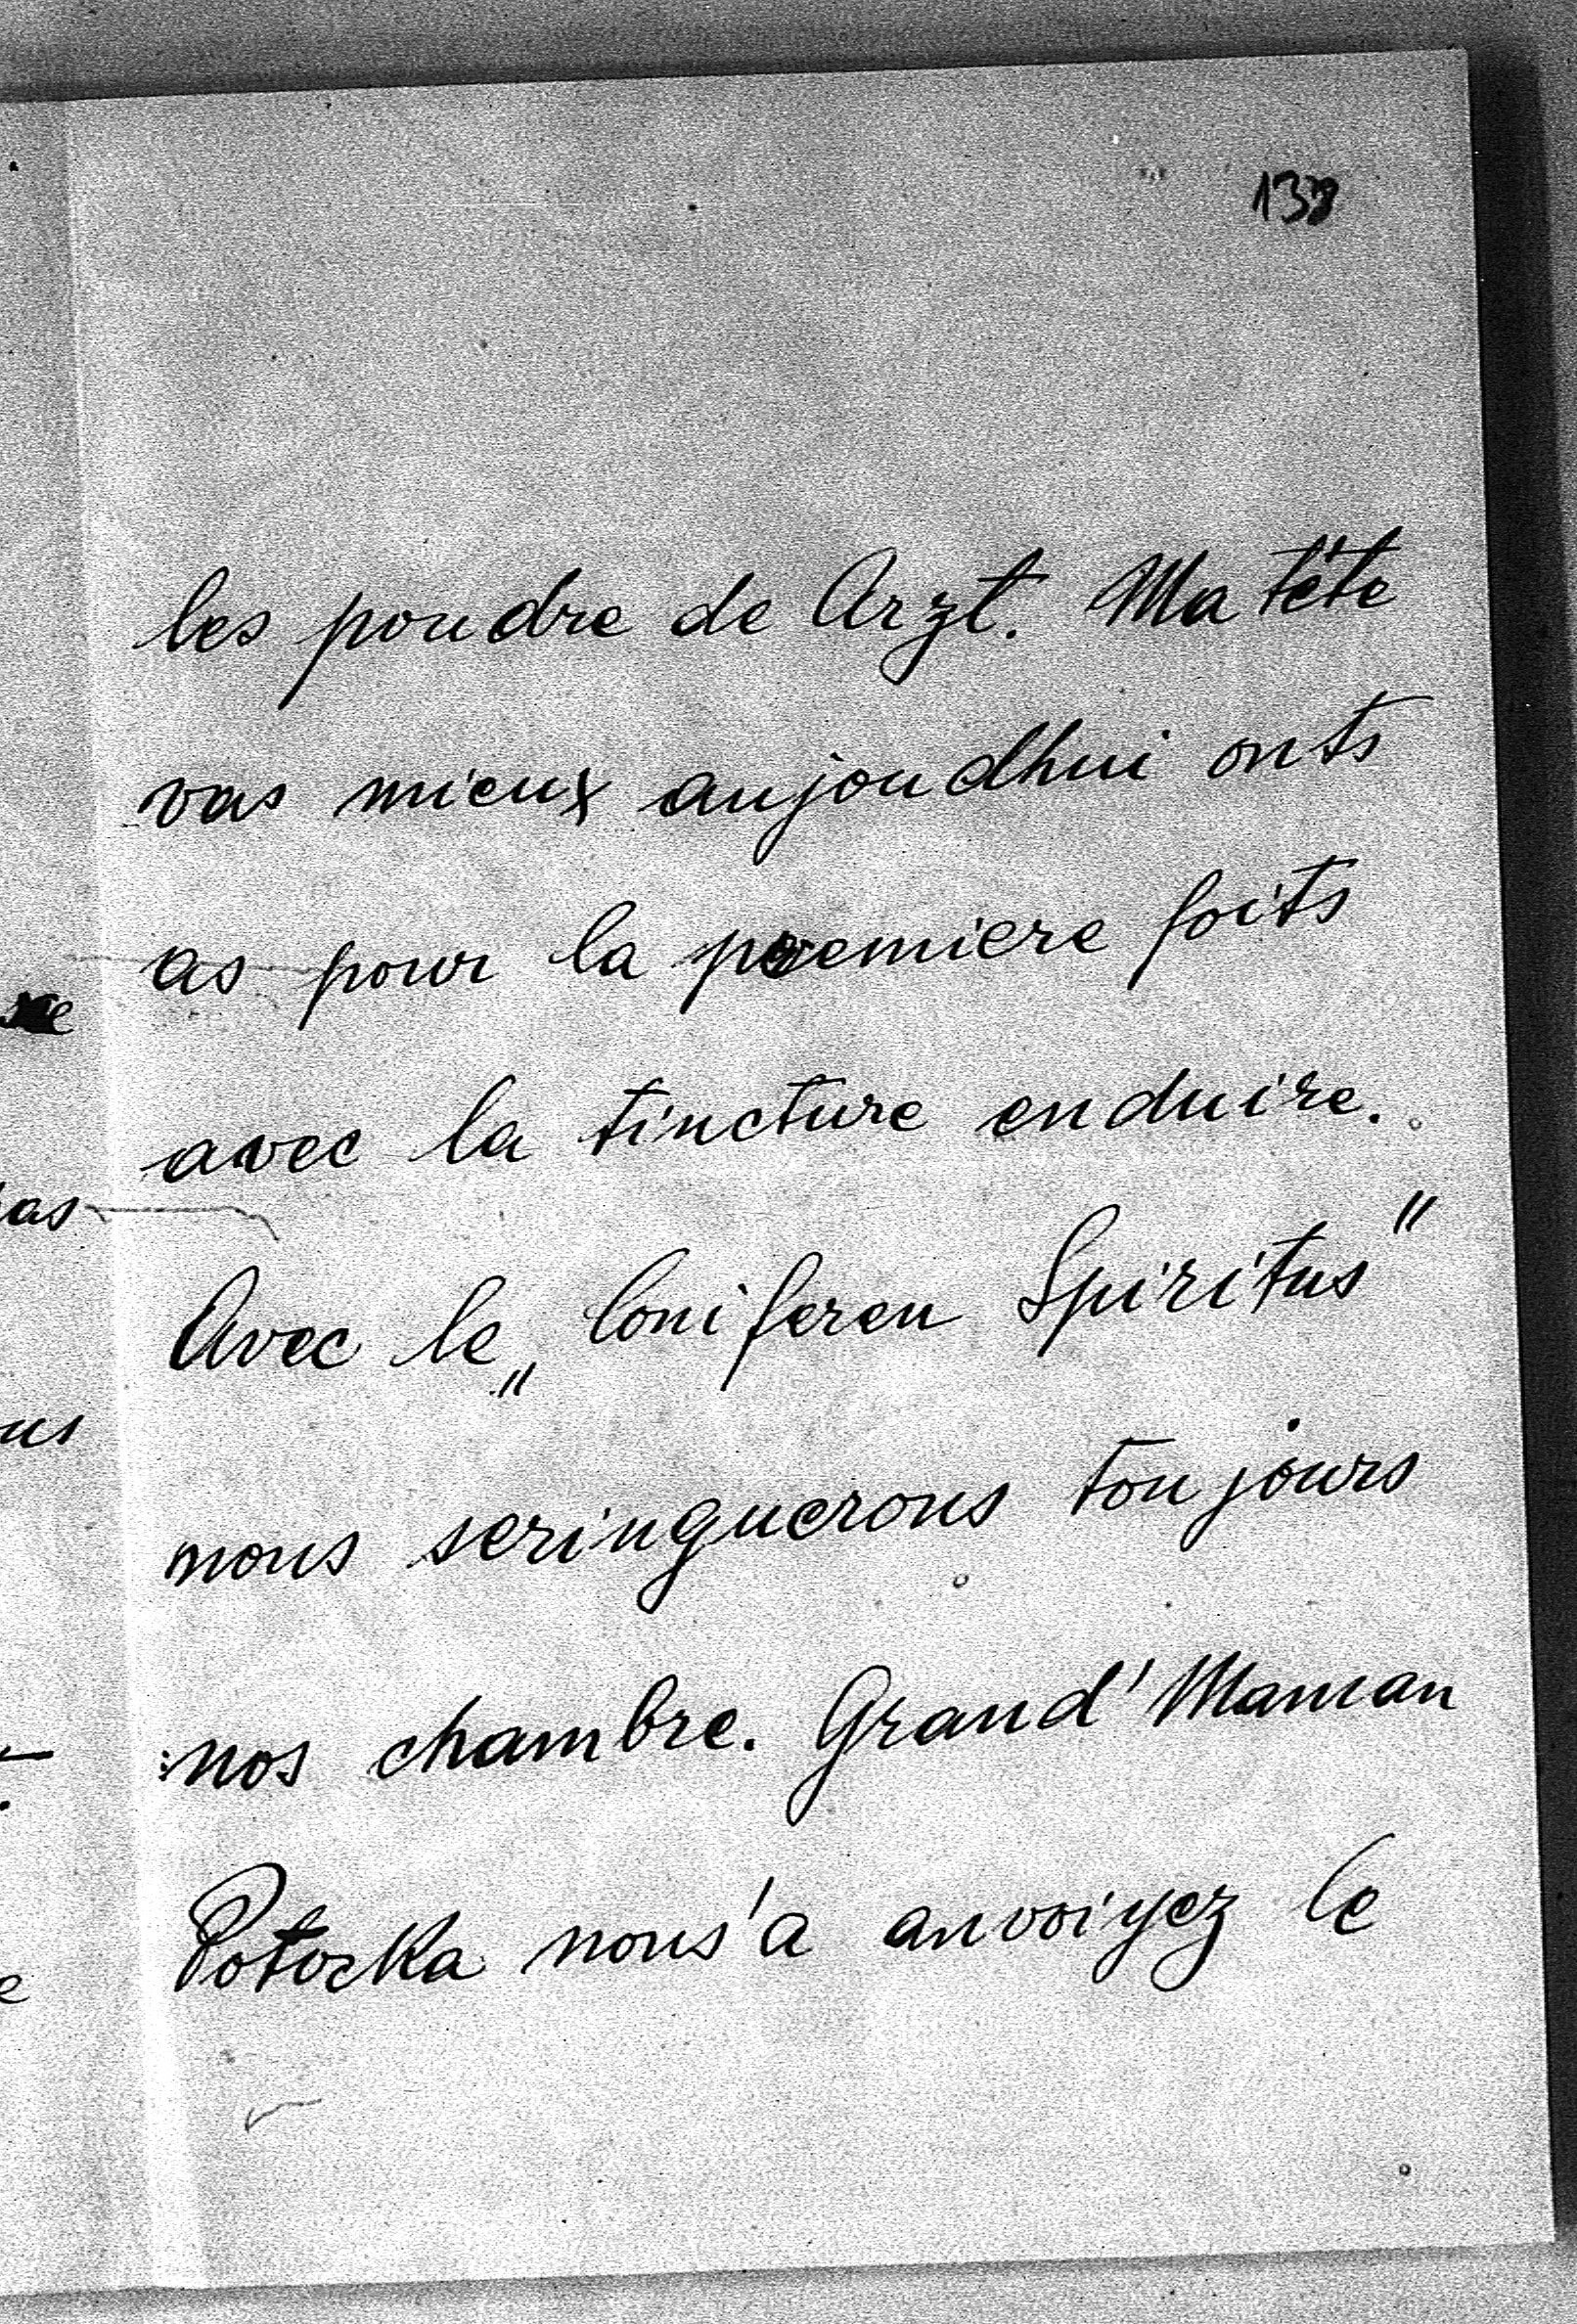 138
les poudre de Arzt. Ma tête
vas mieux aujoudhui onts
as pour la premiere foits
avec la tincture enduire.
Avec le „Coniferen Spiritus"
nous seringuerons toujours
nos chambre. Grand'Maman
Potocka nous'a anvoiyez le